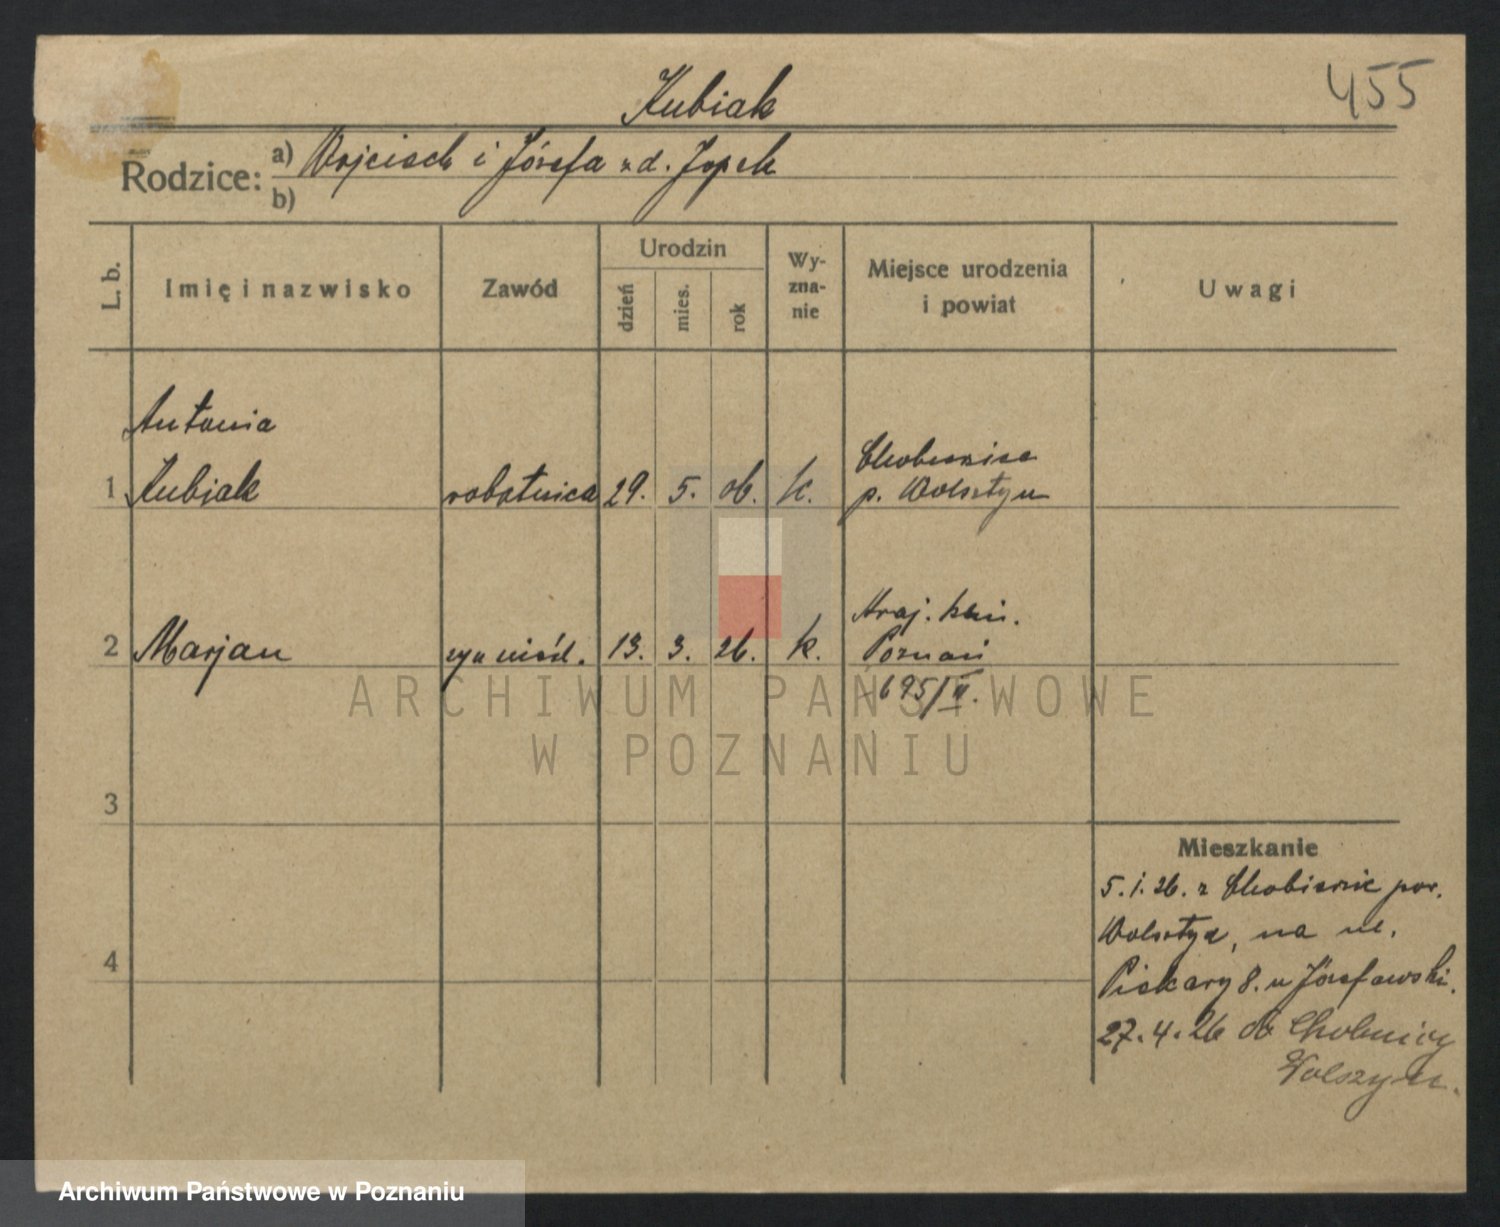 455
Kubiak
Rodzice: a) Wojciech i Józefa z d. Jopek
b)
L. b.
Imię i nazwisko
Zawód
Urodzin
dzień
mies.
rok
Wy-
zna-
nie
Miejsce urodzenia
i powiat
Uwagi
Antonia
1 Kubiak robotnica 29. 5. 06. k.
Chobienice
p. Wolsztyn
2 Marjan syn nieśl. 13. 3. 26. k.
Kraj. klin.
Poznań
695/II.
3
4
Mieszkanie
5.1.26. z Chobienic pow.
Wolsztyn, na ul.
Piekary 8. u Józefowski.
27.4.26 do Chobienicy
Wolszyn.
ARCHIWUM PAŃSTWOWE
W POZNANIU
Archiwum Państwowe w Poznaniu